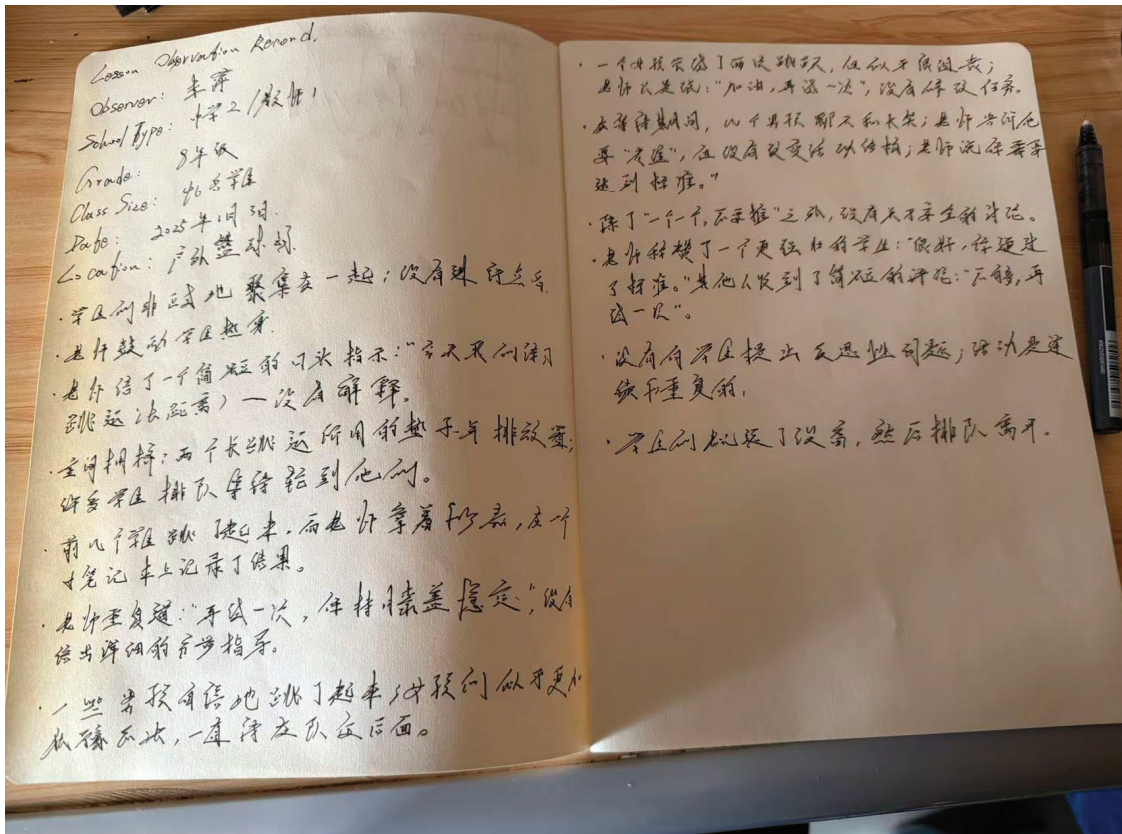 Lesson Observation Record.
Observer: 朱萍
School Type: 中学2/教师1
Grade: 8年级
Class Size: 46名学生
Date: 2025年1月3日.
Location: 户外篮球场.
· 学生们非正式地聚集在一起；没有进行点名.
· 老师鼓励学生热身.
· 老师给了一个简短的口头指示：“今天我们练习
跳远（长距离）—没有解释。
· 空间拥挤：两个长跳远所用的垫子 排放置；
许多学生排队等待轮到他们。
· 前几个学生跳了起来，而老师拿着秒表，在一个
小笔记本上记录了结果。
· 老师重复道：“再试一次，保持膝盖稳定”，没有
给出详细的 指导。
· 一些男孩自信地跳了起来；女孩们似乎更加
犹豫不决，一直待在队 后面。
· 一个女孩尝试了两次跳跃，但似乎很沮丧；
老师只是说：“加油，再试一次”，没有修改任务。
· 在等待期间，几个男孩聊天和大笑；老师告诉他
要“安静”，但没有改变活动结构；老师说你需要
达到标准。”
· 除了“一个一个，不要推”之外，没有关于安全的讨论。
· 老师称赞了一个更强壮的学生：“很好，你通过
了标准。”其他人收到了简短的评论：“不够，再
试一次”。
· 没有向学生提出反思性问题；活动是连
续和重复的.
· 学生们 了设备，然后排队离开.